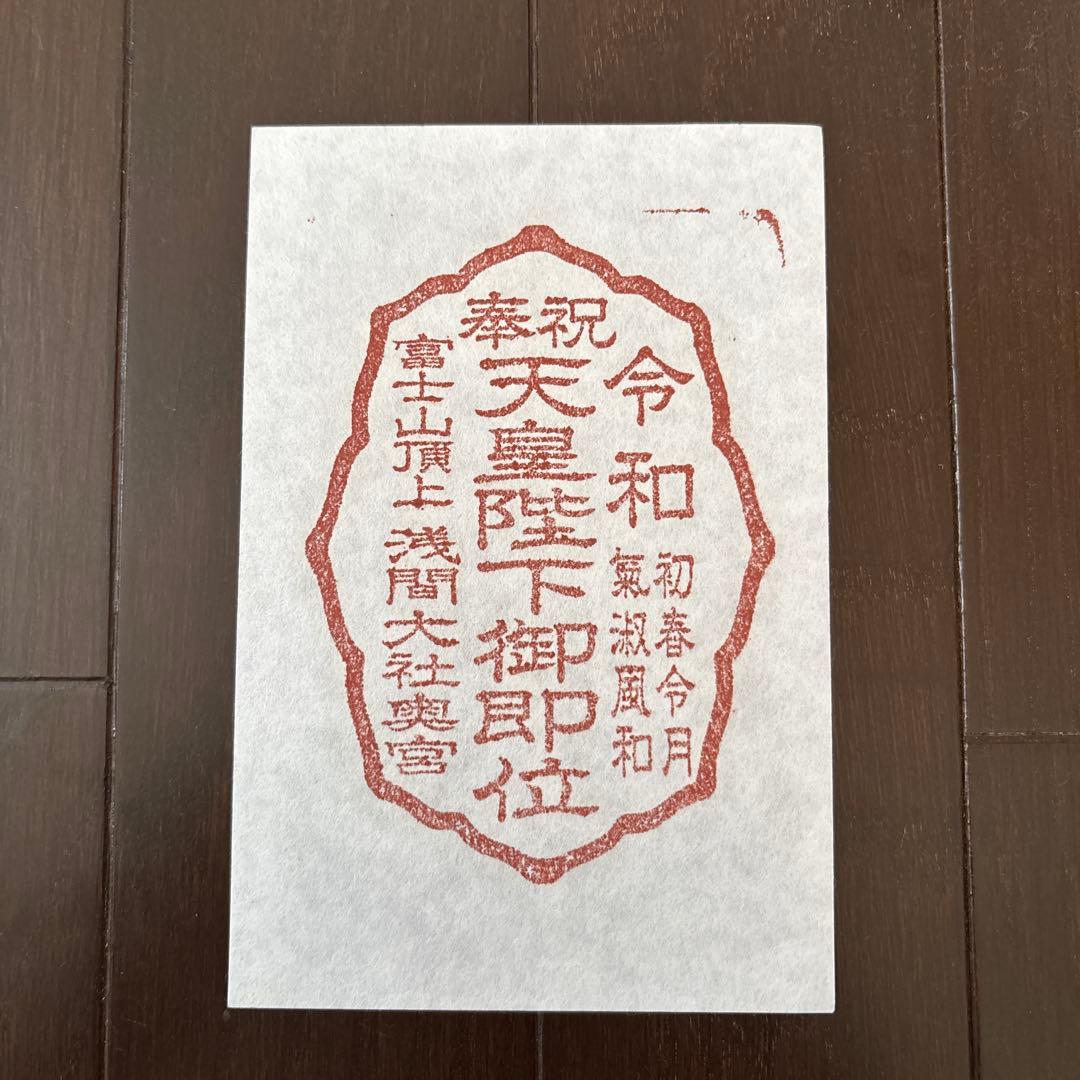 奉祝
令和
初春令月
氣淑風和
天皇陛下御即位
富士山頂上浅間大社奥宮